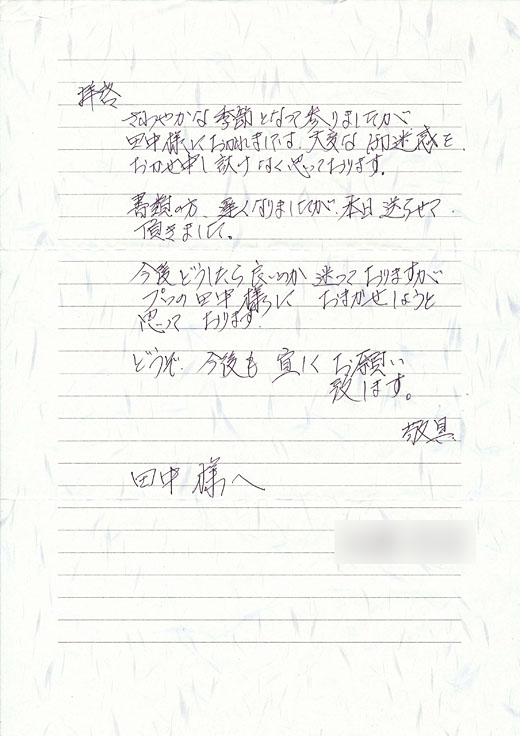 拝啓
さわやかな季節となって参りましたが
田中様におかれましては、大変な御迷惑を
おかけ申し訳けなく思っております。
書類の方、遅くなりましたが、本日送らせて
頂きました。
今後どうしたら良いのか迷っておりますが
プロの田中様におまかせしようと
思っております。
どうぞ、今後も宜しくお願い
致します。
敬具
田中様へ